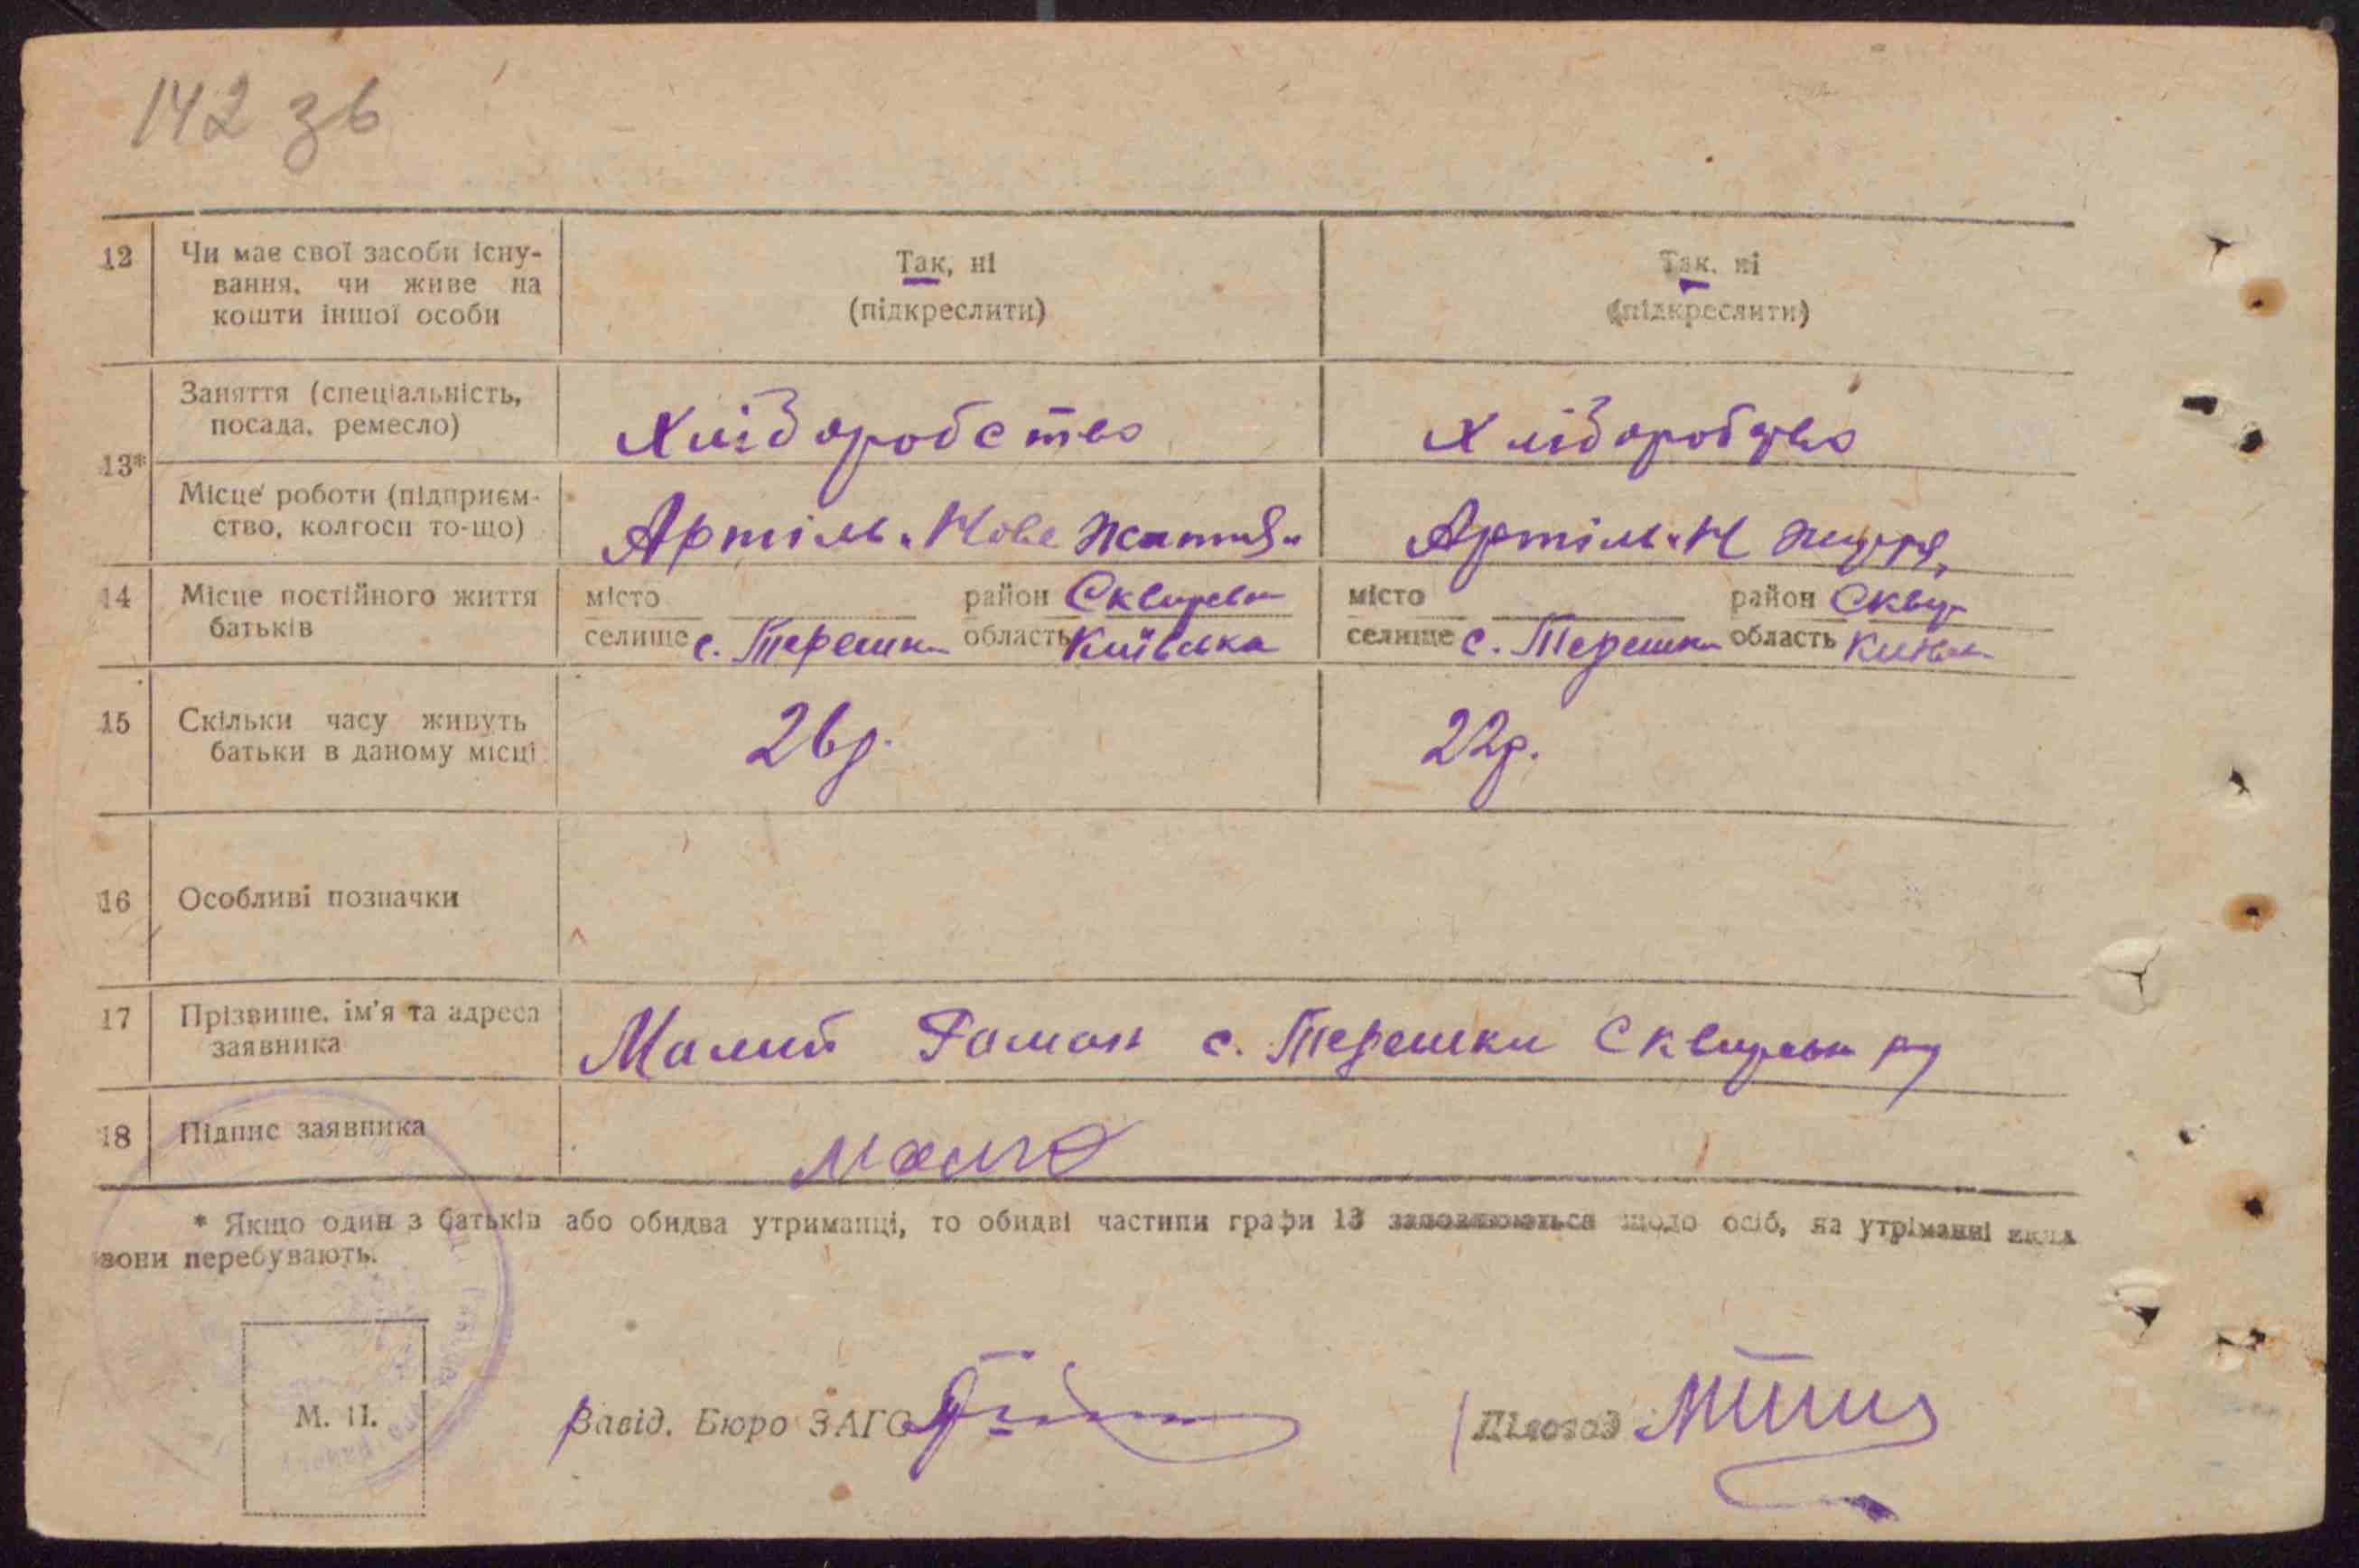 142 зв
12 Чи має свої засоби існу- Так, ні Так, ні
вання, чи живе на (підкреслити) (підкреслити)
кошти іншої особи
Заняття (спеціальність,
посада, ремесло) Хліборобство Хліборобство
13*
Місце роботи (підприєм-
ство, колгосп то-що) Артіль „Нове життя" Артіль „Н життя"
14 Місце постійного життя місто район Сквирськ місто район Сквир
батьків селище с. Терешки область Київська селище с. Терешки область Київськ
15 Скільки часу живуть 26 р. 22 р.
батьки в даному місці
16 Особливі позначки
17 Прізвише, ім'я та адреса
заявника Малий Роман с. Терешки Сквирськ р-у
18 Підпис заявника
* Якщо один з батьків або обидва утриманці, то обидві частини графи 13 заповнюються щодо осіб, на утріманні яких
вони перебувають.
М. П. Завід. Бюро ЗАГС Діловод